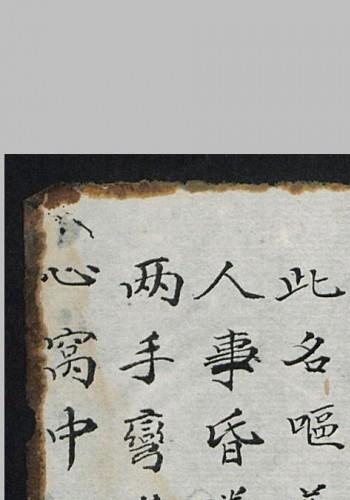 此名嘔
人事昏
两手彎
心窩中